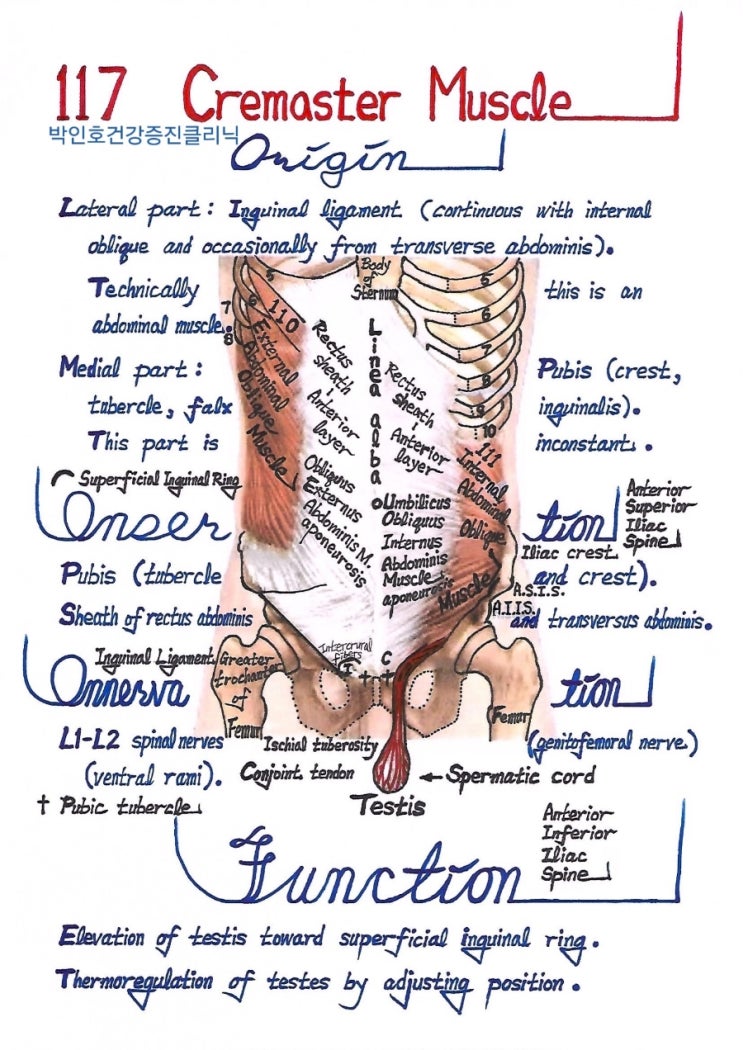 117 Cremaster Muscle
박인호건강증진클리닉
Origin
Lateral part: Inguinal ligament (continuous with internal
oblique and occasionally from transverse abdominis).
Technically this is an
abdominal muscle.
Medial part: Pubis (crest,
tubercle, falx inguinalis).
This part is inconstant.
Body
of
Sternum
5
6
7
8
110
External
Abdominal
Oblique
Muscle
Rectus
sheath
Anterior
layer
Obliquus
Externus
Abdominis M.
aponeurosis
Linea alba
5
6
7
8
9
10
Rectus
sheath
Anterior
layer
111
Internal
Abdominal
Oblique
Muscle
Umbilicus
Obliquus
Internus
Abdominis
Muscle
aponeurosis
Superficial Inguinal Ring
Anterior
Superior
Iliac
Spine
Insertion
Iliac crest
Pubis (tubercle and crest).
A.S.I.S.
A.I.I.S.
Sheath of rectus abdominis and transversus abdominis.
Intercrural
fibers
C
†
†
Inguinal Ligament
Greater
trochanter
of
Femur
(Femur
Innervation
L1-L2 spinal nerves (genitofemoral nerve)
(ventral rami).
Ischial tuberosity
Conjoint tendon
← Spermatic cord
† Pubic tubercle
Testis
Anterior
Inferior
Iliac
Spine
Function
Elevation of testis toward superficial inguinal ring.
Thermoregulation of testes by adjusting position.